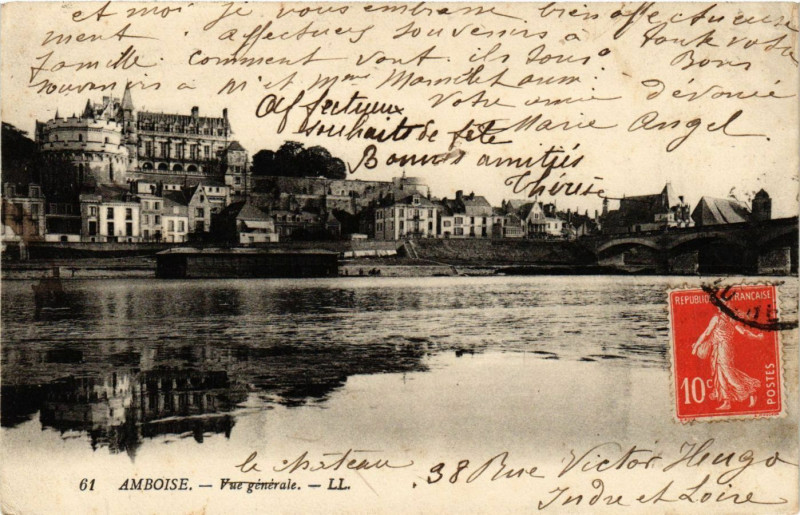 et moi je vous embrasse bien affectueuse
ment. affectueux souvenirs à toute votre
famille. comment vont-ils tous? Bons
souvenirs à Mr et Mme
votre amie dévouée
Marie Angel.
Affectueux
souhaits de fête
Bonnes amitiés
Thérèse
REPUBLIQUE FRANÇAISE
10c
POSTES
le château
38 Rue Victor Hugo
Indre et Loire
61 AMBOISE. — Vue générale. — LL.